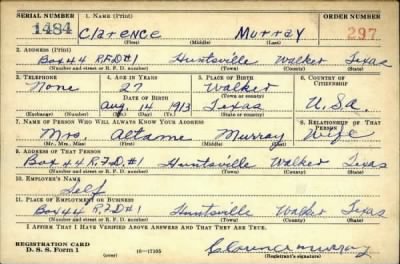 SERIAL NUMBER 1. NAME (Print) ORDER NUMBER
1484 Clarence Murray 297
(First) (Middle) (Last)
2. ADDRESS (Print)
Box 44 R.F.D #1 Huntsville Walker Texas
(Number and street or R. F. D. number) (Town) (County) (State)
3. TELEPHONE 4. AGE IN YEARS 5. PLACE OF BIRTH 6. COUNTRY OF CITIZENSHIP
None 27 Walker
DATE OF BIRTH (Town or county)
Aug 14 1913 Texas U.S.a.
(Exchange) (Number) (Mo.) (Day) (Yr.) (State or country)
7. NAME OF PERSON WHO WILL ALWAYS KNOW YOUR ADDRESS 8. RELATIONSHIP OF THAT PERSON
Mrs. Altame Murray Wife
(Mr., Mrs., Miss) (First) (Middle) (Last)
9. ADDRESS OF THAT PERSON
Box 44 R.F.D. #1 Huntsville Walker Texas
(Number and street or R. F. D. number) (Town) (County) (State)
10. EMPLOYER'S NAME
Self
11. PLACE OF EMPLOYMENT OR BUSINESS
Box 44 R.F.D #1 Huntsville Walker Texas
(Number and street or R. F. D. number) (Town) (County) (State)
I AFFIRM THAT I HAVE VERIFIED ABOVE ANSWERS AND THAT THEY ARE TRUE.
REGISTRATION CARD
D. S. S. Form 1 (over) 16—17105 Clarence Murray
(Registrant's signature)